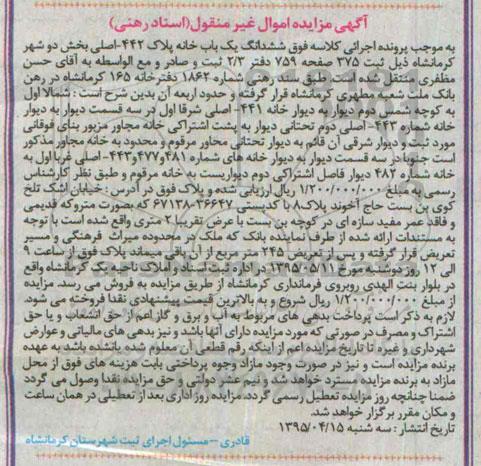 آگهی مزایده اموال غیر منقول(اسناد رهنی)
به موجب پرونده اجرائی کلاسه فوق ششدانگ یک باب خانه پلاک ۴۴۲-اصلی بخش دو شهر
کرمانشاه ذیل ثبت ۳۷۵ صفحه ۷۵۹ دفتر ۲/۳ ثبت و صادر و مع الواسطه به آقای حسن
مظفری منتقل شده است. طبق سند رهنی شماره ۱۸۶۲ دفترخانه ۱۶۵ کرمانشاه در رهن
بانک ملت شعبه مطهری کرمانشاه قرار گرفته و حدود اربعه آن بدین شرح است : شمالا اول
به کوچه شمس دوم دیوار به دیوار خانه ۴۴۱- اصلی شرقا اول در سه قسمت دیوار به دیوار
خانه شماره ۴۴۳- اصلی دوم تحتانی دیوار به پشت اشتراکی خانه مجاور مزبور بنای فوقانی
مورد ثبت و دیوار شرقی آن قائم به دیوار تحتانی محاور مرقوم و محدود به خانه مجاور مذکور
است جنوبا در سه قسمت دیوار به دیوار خانه های شماره ۴۸۱و۴۷۷و۴۴۳- اصلی غربا اول به
خانه شماره ۴۸۲ دیوار فاصل اشتراکی دوم دیواریست به خانه مرقوم و طبق نظر کارشناس
رسمی به مبلغ ۱/۲۰۰/۰۰۰/۰۰۰ ریال ارزیابی شده و پلاک فوق در آدرس : خیابان اشک تلخ
کوی بن بست حاج آخوند پلاک۸ با کدپستی ۳۶۶۴۷-۶۷۱۳۸ که بصورت متروکه قدیمی
و فاقد عمر مفید سازه ای در کوچه بن بست با عرض تقریبا ۲ متری واقع شده است با توجه
به مستندات ارائه شده از طرف نماینده بانک که ملک در محدوده میراث فرهنگی و مسیر
تعریض قرار گرفته و پس از تعریض ۲۴۵ متر مربع از آن باقی میماند پلاک فوق از ساعت ۹
الی ۱۲ روز دوشنبه مورخ ۱۳۹۵/۰۵/۱۱ در اداره ثبت اسناد و املاک ناحیه یک کرمانشاه واقع
در بلوار بنت الهدی روبروی فرمانداری کرمانشاه از طریق مزایده به فروش می رسد. مزایده
از مبلغ ۱/۲۰۰/۰۰۰/۰۰۰ ریال شروع و به بالاترین قیمت پیشنهادی نقدا فروخته می شود.
لازم به ذکر است پرداخت بدهی های مربوط به آب و برق و گاز اعم از حق انشعاب و یا حق
اشتراک و مصرف در صورتی که مورد مزایده دارای آنها باشد و نیز بدهی های مالیاتی و عوارض
شهرداری و غیره تا تاریخ مزایده اعم از اینکه رقم قطعی آن معلوم شده یانشده باشد به عهده
برنده مزایده است و نیز در صورت وجود مازاد وجوه پرداختی بابت هزینه های فوق از محل
مازاد به برنده مزایده مسترد خواهد شد و نیم عشر دولتی و حق مزایده نقدا وصول می گردد
ضمنا چنانچه روز مزایده تعطیل رسمی گردد، مزایده روز اداری بعد از تعطیلی در همان ساعت
و مکان مقرر برگزار خواهد شد.
تاریخ انتشار : سه شنبه ۱۳۹۵/۰۴/۱۵
قادری -مسئول اجرای ثبت شهرستان کرمانشاه